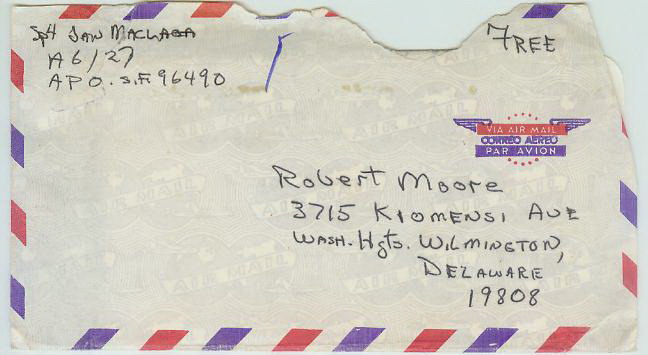 Sp4 JAN MACLAGA
A6/27
APO. S.F. 96490
FREE
VIA AIR MAIL
CORREO AEREO
PAR AVION
Robert Moore
3715 KIOMENSI AVE
WASH. Hgts. WILMINGTON,
DELAWARE
19808
AIR MAIL